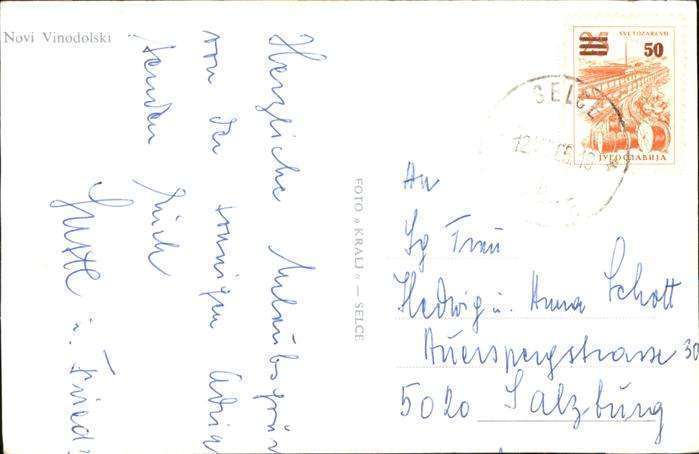 Novi Vinodolski
Herzliche Urlaubsgrüs
von der sonnigen Adria
senden Euch
Gustl u. Fried
FOTO »KRALJ« — SELCE
SVETOZAREVO
50
ЈУГОСЛАВИЈА
SELCE
An
Sg Frau
Hedwig u. Anna Schott
Auerspergstrasse 30
5020 Salzburg